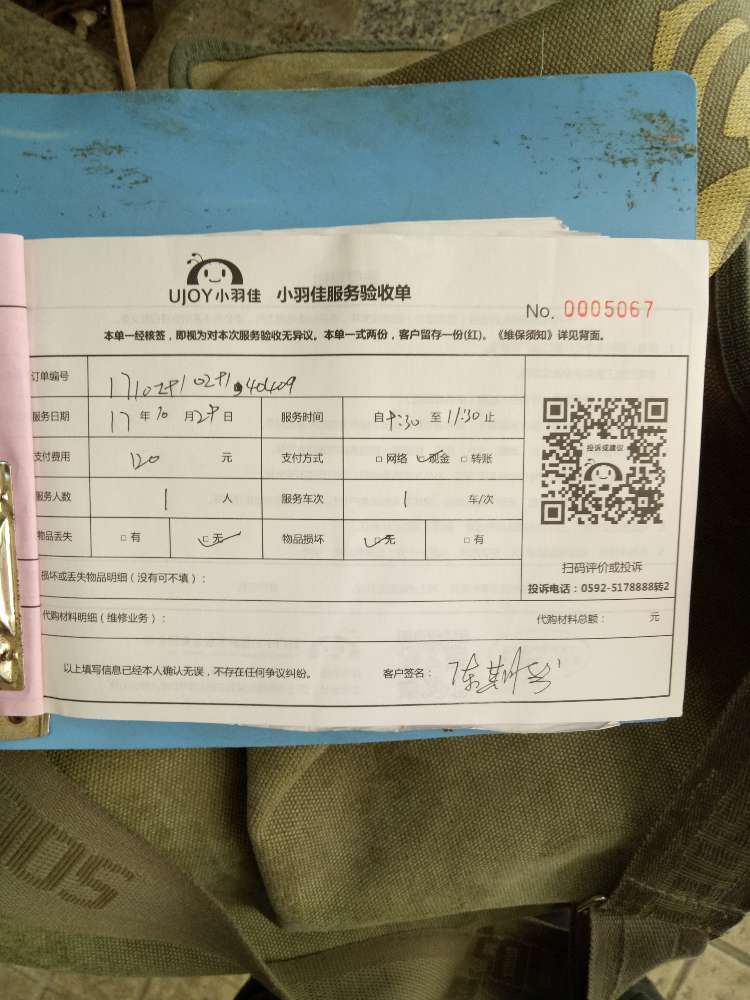 UJOY小羽佳 小羽佳服务验收单
No. 0005067
本单一经核签，即视为对本次服务验收无异议。本单一式两份，客户留存一份(红)。《维保须知》详见背面。
订单编号
服务日期 17 年 10 月 29 日 服务时间 自 9:30 至 11:30 止
支付费用 120 元 支付方式 □ 网络 □ 现金 □ 转账
服务人数 1 人 服务车次 1 车/次
物品丢失 □ 有 □ 无 物品损坏 □ 无 □ 有
投诉或建议
扫码评价或投诉
投诉电话：0592-5178888转2
损坏或丢失物品明细（没有可不填）：
代购材料明细（维修业务）： 代购材料总额： 元
以上填写信息已经本人确认无误，不存在任何争议纠纷。 客户签名：